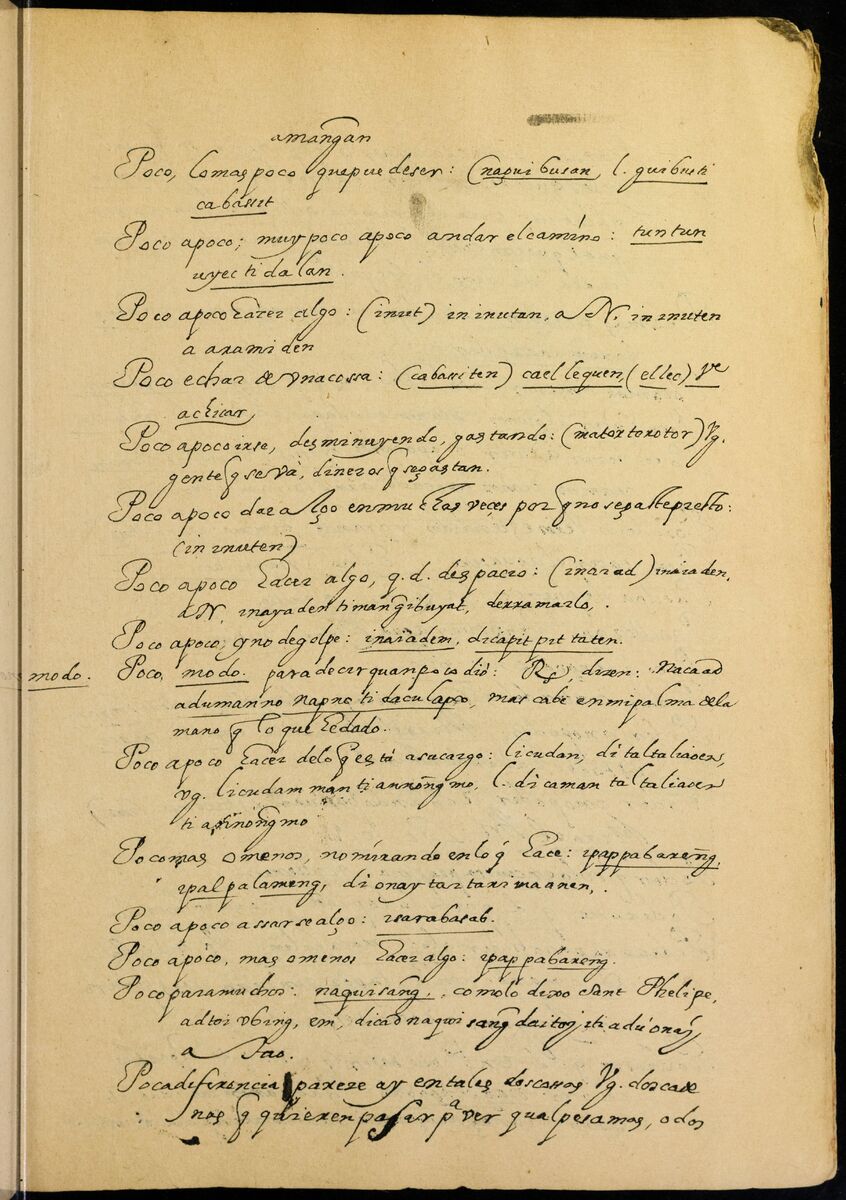 amang̃an
Poco, lo mas poco que pue de ser: (naquibusan, l. quibusti
cabassit
Poco apoco; muy poco apoco andar el camino: tuntun
uyec ti dalan.
Poco apoco hacer algo: (inut) in inutan, a N. in inuten
a aramiden
Poco echar de vna cossa: (cabassiten) caellequen, (ellec) ve
achicar,
Poco apoco irse, desminuyendo, gastando: (matortorotor) Vg.
gente q̃ se va, dineros q̃ se gastan.
Poco apoco dar algo en muchas veces por q̃ no se gaste presto:
(in inuten)
Poco apoco hacer algo, q. d. despacio: (inaiad) inaiaden,
a N, inayaden ti mang̃ibuyat, derramarlo,.
Poco apoco, y no de golpe: inaiadem, dicapit pit taten.
modo. Poco, modo. para decir quan poco dió: R, dizen: nacaad
adumanno napno ti daculapco, mas cabe en mi palma de la
mano q̃ lo que he dado.
Poco apoco hacer delo q̃ está asucargo: licudan, di taltaliaoen,
vg. licudam man ti annong̃mo, l. di caman taltaliaoen
ti annong̃mo
Poco mas o menos, no mirando en lo q̃ hace: ipappabareng̃,
ipalpalameng, di onay tartarimaanen,.
Poco apoco assarse algo: isarabasab.
Poco apoco, mas o menos hacer algo: ipappabareng.
Poco para muchos: naquisang̃, como lo dixo Sant Phelipe,
adtoi vbing, em, dicad naqui sang̃ daitoy iti adu onay
a tao.
Poca diferencia pareze ay entales dos cossas Vg. dos cade
nas q̃ quieren pasar pa ver qual pesa mas, o dos